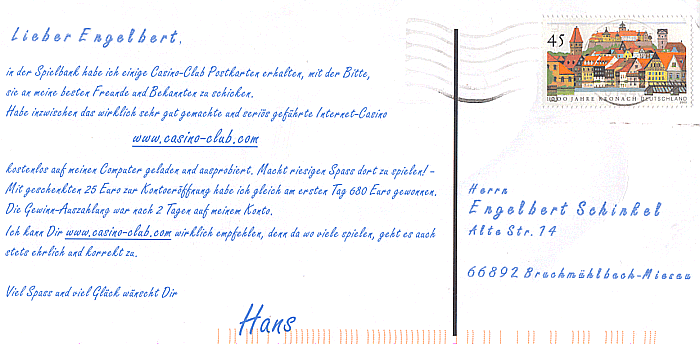 Lieber Engelbert,
in der Spielbank habe ich einige Casino-Club Postkarten erhalten, mit der Bitte,
sie an meine besten Freunde und Bekannten zu schicken.
Habe inzwischen das wirklich sehr gut gemachte und seriös geführte Internet-Casino
www.casino-club.com
kostenlos auf meinen Computer geladen und ausprobiert. Macht riesigen Spass dort zu spielen! -
Mit geschenkten 25 Euro zur Kontoeröffnung habe ich gleich am ersten Tag 680 Euro gewonnen.
Die Gewinn-Auszahlung war nach 2 Tagen auf meinem Konto.
Ich kann Dir www.casino-club.com wirklich empfehlen, denn da wo viele spielen, geht es auch
stets ehrlich und korrekt zu.
Viel Spass und viel Glück wünscht Dir
Hans
45
1000 JAHRE KRONACH DEUTSCHLAND
Herrn
Engelbert Schinkel
Alte Str. 14
66892 Bruchmühlbach-Miesau